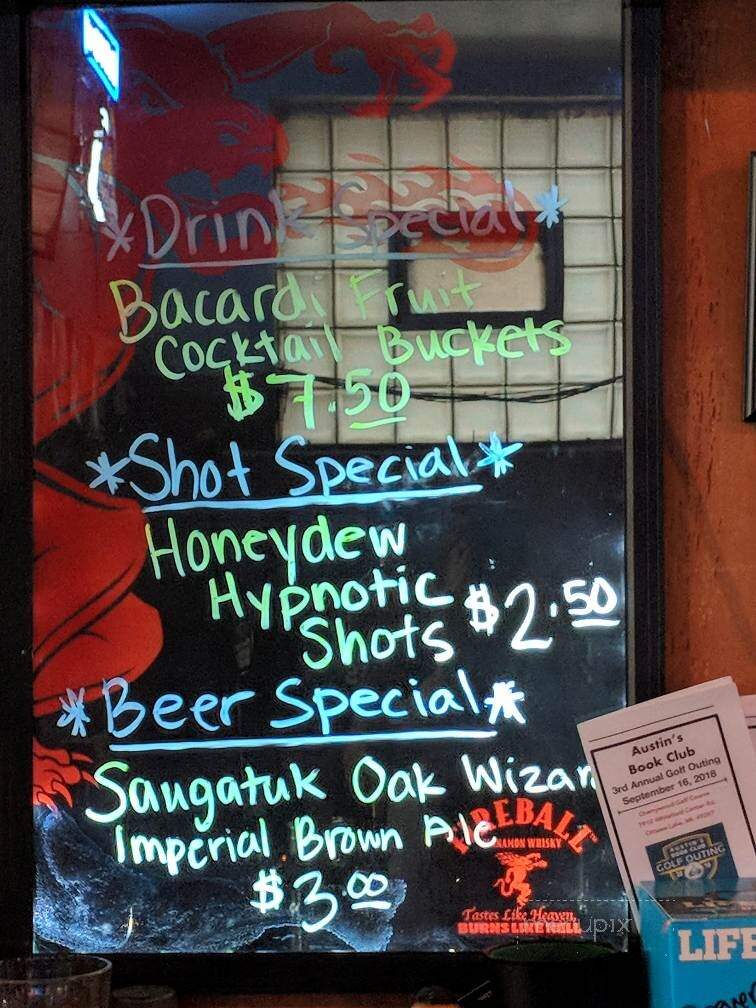 *Drink Special*
Bacardi Fruit
Cocktail Buckets
$7.50
*Shot Special*
Honeydew
Hypnotic
Shots $2.50
*Beer Special*
Saugatuk Oak Wizar
Imperial Brown Ale
$3.00
FIREBALL
NAMON WHISKY
Tastes Like Heaven,
BURNS LIKE HELL
Austin's
Book Club
3rd Annual Golf Outing
September 16, 2018
AUSTIN'S
BOOK CLUB
GOLF OUTING
LIFE